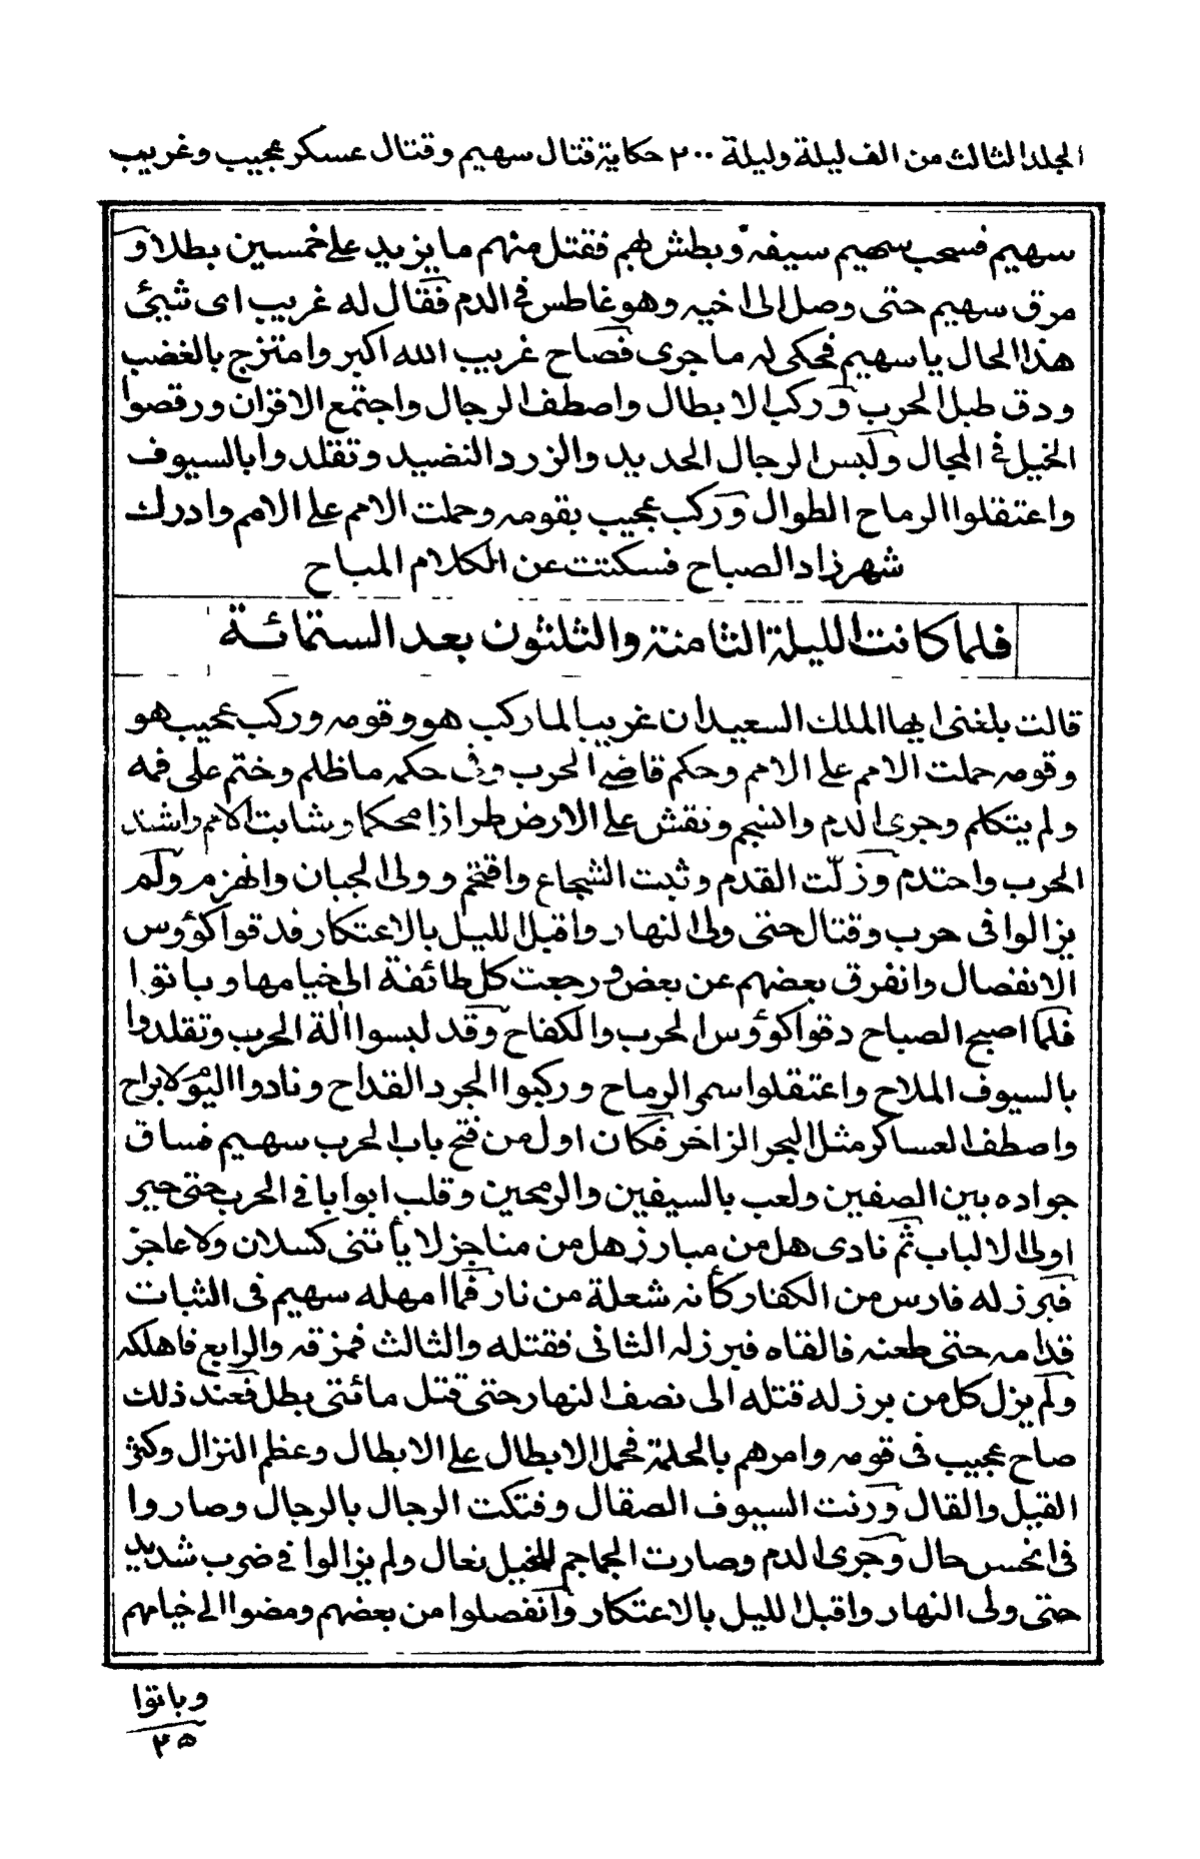 المجلد الثالث من الف ليلة وليلة ٢٠٠ حكاية قتال سهيم وقتال عسكر عجيب وغريب
سهيم فسحب سهيم سيفه وبطش بهم فقتل منهم ما يزيد على خمسين بطلا و
مرق سهيم حتى وصل الى اخيه وهو غاطس فى الدم فقال له غريب اى شيئ
هذا الحال يا سهيم فحكى له ما جرى فصاح غريب الله اكبر وامتزج بالغضب
ودق طبل الحرب وركب الابطال واصطف الرجال واجتمع الاقران ورقصوا
الخيل فى المجال ولبس الرجال الحديد والزرد النضيد وتقلدوا بالسيوف
واعتقلوا الرماح الطوال وركب عجيب بقومه وحملت الامم على الامم وادرك
شهرزاد الصباح فسكتت عن الكلام المباح
فلما كانت الليلة الثامنة والثلثون بعد الستمائة
قالت بلغنى ايها الملك السعيد ان غريبا لما ركب هو وقومه وركب عجيب هو
وقومه حملت الامم على الامم وحكم قاضى الحرب وفى حكمه ما ظلم وختم على فمه
ولم يتكلم وجرى الدم وانسجم ونقش على الارض طرازا محكما وشابت الامم واشتد
الحرب واحتدم وزلّت القدم وثبت الشجاع واقتحم وولى الجبان وانهزم ولم
يزالوا فى حرب وقتال حتى ولى النهار واقبل الليل بالاعتكار فدقوا كؤوس
الانفصال وانفرق بعضهم عن بعض ورجعت كل طائفة الى خيامها وباتوا
فلما اصبح الصباح دقوا كؤوس الحرب والكفاح وقد لبسوا الة الحرب وتقلدوا
بالسيوف الملاح واعتقلوا سمر الرماح وركبوا الجرد القداح ونادوا اليوم لا براح
واصطف العساكر مثل البحر الزاخر فكان اول من فتح باب الحرب سهيم فساق
جواده بين الصفين ولعب بالسيفين والرمحين وقلب ابوابا فى الحرب حتى حير
اولى الالباب ثم نادى هل من مبارز هل من مناجز لا يأتنى كسلان ولا عاجز
فبرز له فارس من الكفار كأنه شعلة من نار فما امهله سهيم فى الثبات
قدامه حتى طعنه فالقاه فبرز له الثانى فقتله والثالث فمزقه والرابع فاهلكه
ولم يزل كل من برز له قتله الى نصف النهار حتى قتل مائتى بطل فعند ذلك
صاح عجيب فى قومه وامرهم بالحملة فحمل الابطال على الابطال وعظم النزال وكثر
القيل والقال ورنت السيوف الصقال وفتكت الرجال بالرجال وصاروا
فى انحس حال وجرى الدم وصارت الجماجم للخيل نعال ولم يزالوا فى ضرب شديد
حتى ولى النهار واقبل الليل بالاعتكار وانفصلوا من بعضهم ومضوا الى خيامهم
وباتوا
٢٥